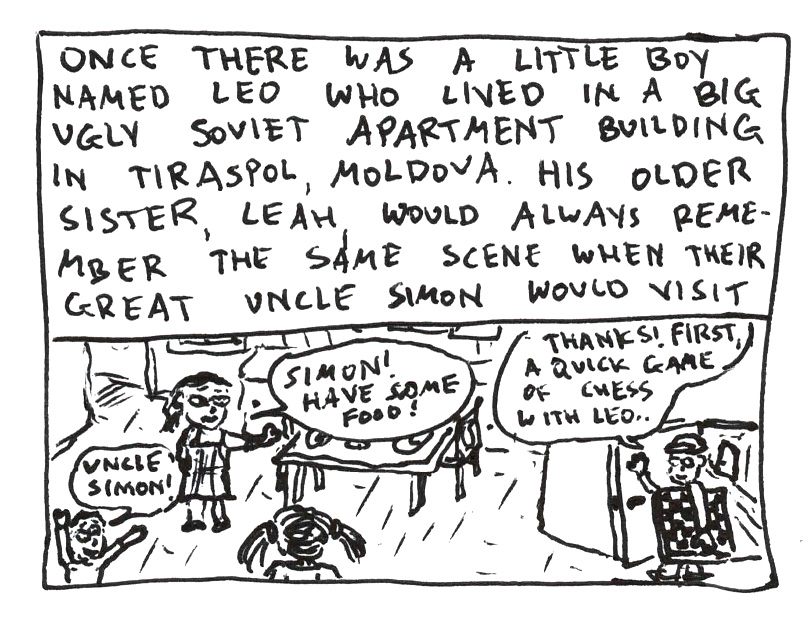 ONCE THERE WAS A LITTLE BOY
NAMED LEO WHO LIVED IN A BIG
UGLY SOVIET APARTMENT BUILDING
IN TIRASPOL, MOLDOVA. HIS OLDER
SISTER, LEAH, WOULD ALWAYS REME-
MBER THE SAME SCENE WHEN THEIR
GREAT UNCLE SIMON WOULD VISIT
UNCLE
SIMON!
SIMON!
HAVE SOME
FOOD!
THANKS! FIRST,
A QUICK GAME
OF CHESS
WITH LEO..